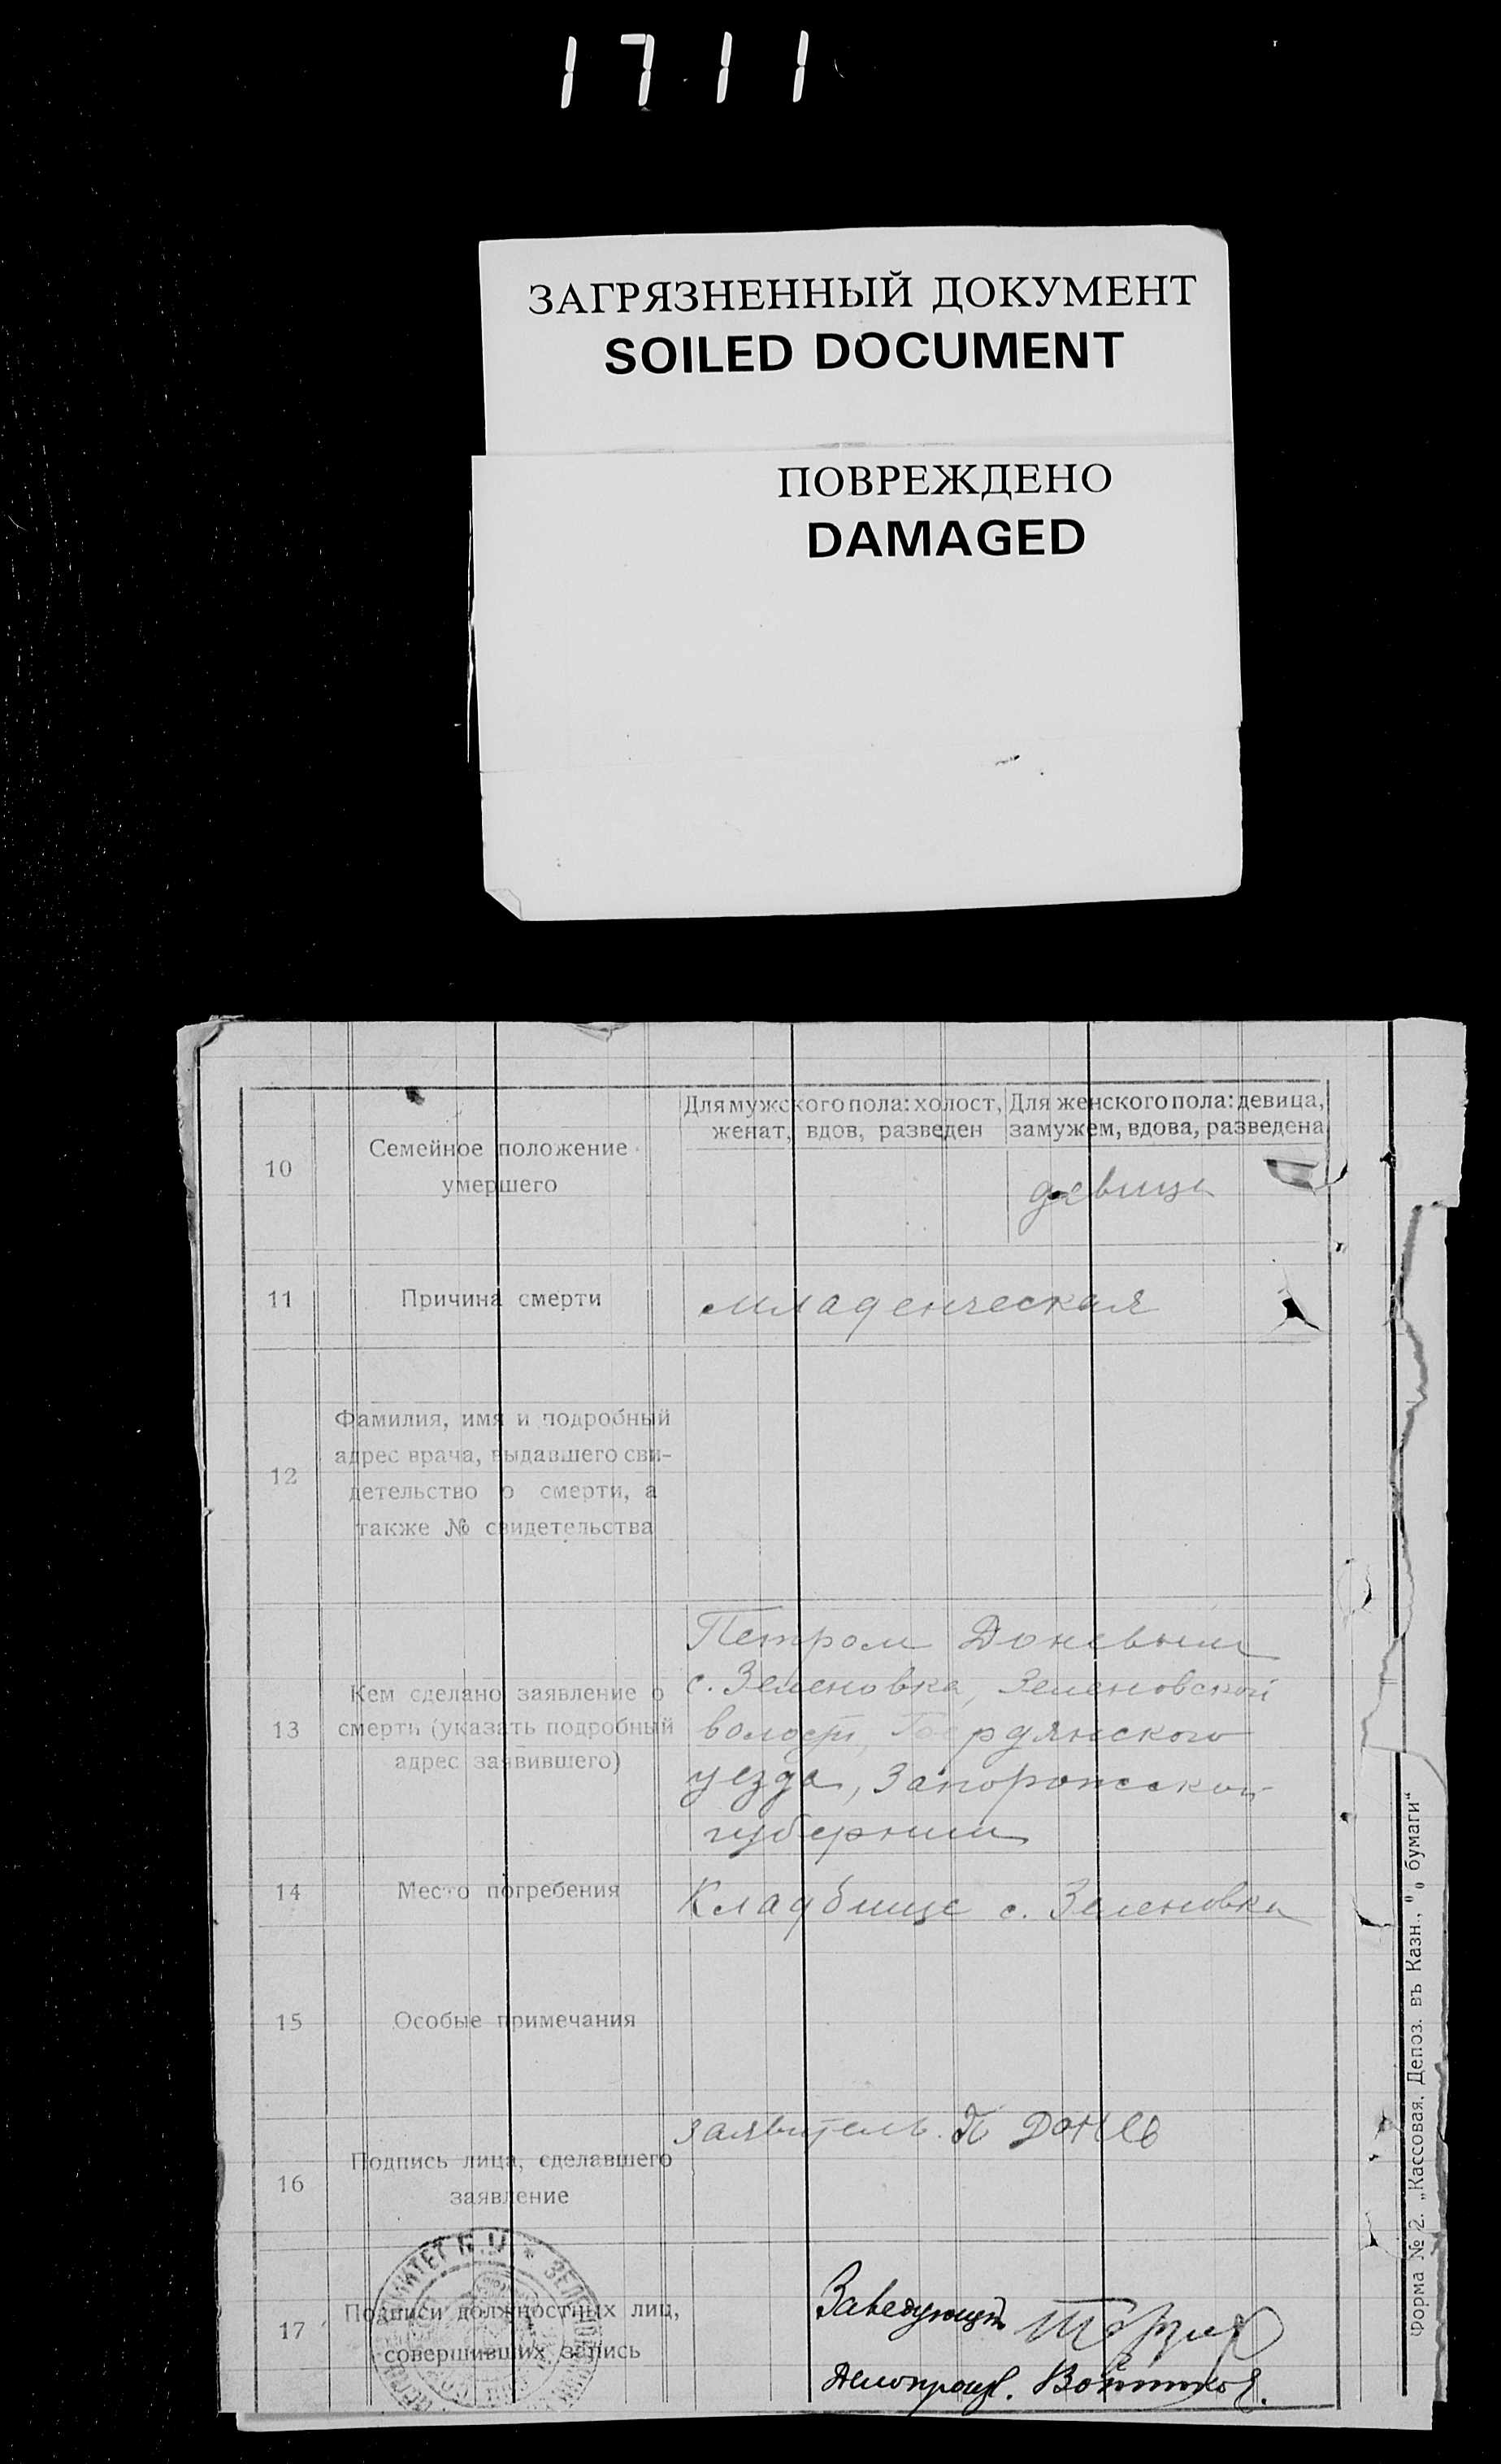 1711
ЗАГРЯЗНЕННЫЙ ДОКУМЕНТ
SOILED DOCUMENT
ПОВРЕЖДЕНО
DAMAGED
Для мужского пола: холост,
женат, вдов, разведен
Для женского пола: девица,
замужем, вдова, разведена
10
Семейное положение
умершего
девица
11
Причина смерти
младенческая
12
Фамилия, имя и подробный
адрес врача, выдавшего сви-
детельство о смерти, а
также № свидетельства
13
Кем сделано заявление о
смерти (указать подробный
адрес заявившего)
Петром Доневым
с. Зеленовка, Зеленовской
волости, Бердянского
уезда, Запорожской
губернии
14
Место погребения
Кладбище с. Зеленовка
15
Особые примечания
16
Подпись лица, сделавшего
заявление
заявитель. П Донев
17
Подписи должностных лиц,
совершивших запись
Заведующий
Делопроизв.
Форма № 2. „Кассовая. Депоз. въ Казн., % бумаги“